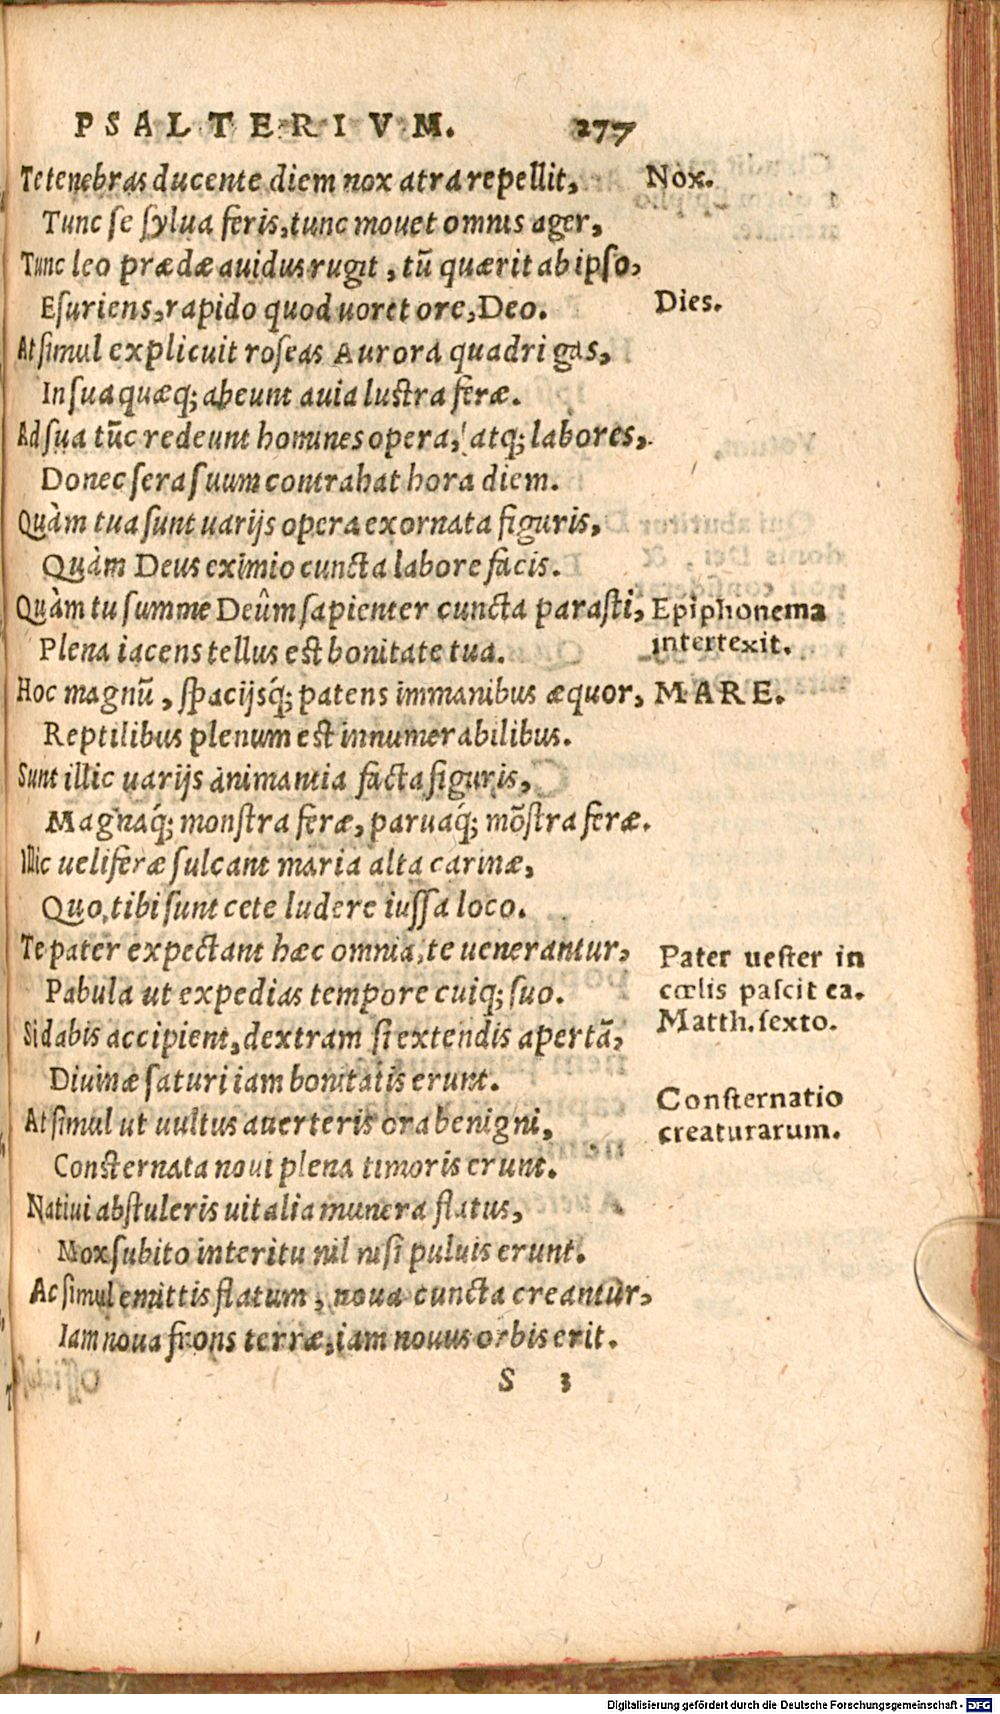 PSALTERIVM. 277
Te tenebras ducente diem nox atra repellit, Nox.
Tunc se sylua feris, tunc mouet omnis ager,
Tunc leo prædæ auidus rugit, tū quærit ab ipso,
Esuriens, rapido quod uoret ore, Deo. Dies.
At simul explicuit roseas Aurora quadrigas,
In sua quæq; abeunt auia lustra feræ.
Ad sua tūc redeunt homines opera, atq; labores,
Donec sera suum contrahat hora diem.
Quàm tua sunt uarijs opera exornata figuris,
Quàm Deus eximio cuncta labore facis.
Quàm tu summe Deûm sapienter cuncta parasti, Epiphonema
Plena iacens tellus est bonitate tua. intertexit.
Hoc magnū, spacijsq́; patens immanibus æquor, MARE.
Reptilibus plenum est innumerabilibus.
Sunt illic uarijs animantia facta figuris,
Magnaq́; monstra feræ, paruaq́; mōstra feræ.
Illic ueliferæ sulcant maria alta carinæ,
Quo, tibi sunt cete ludere iussa loco.
Te pater expectant hæc omnia, te uenerantur, Pater uester in
Pabula ut expedias tempore cuiq; suo. cœlis pascit ea.
Si dabis accipient, dextram si extendis apertā, Matth. sexto.
Diuinæ saturi iam bonitatis erunt.
At simul ut uultus auerteris ora benigni, Consternatio
Consternata noui plena timoris erunt. creaturarum.
Natiui abstuleris uitalia munera flatus,
Mox subito interitu nil nisi puluis erunt.
Ac simul emittis flatum, noua cuncta creantur,
Iam noua frons terræ, iam nouus orbis erit.
S 3
Digitalisierung gefördert durch die Deutsche Forschungsgemeinschaft - DFG